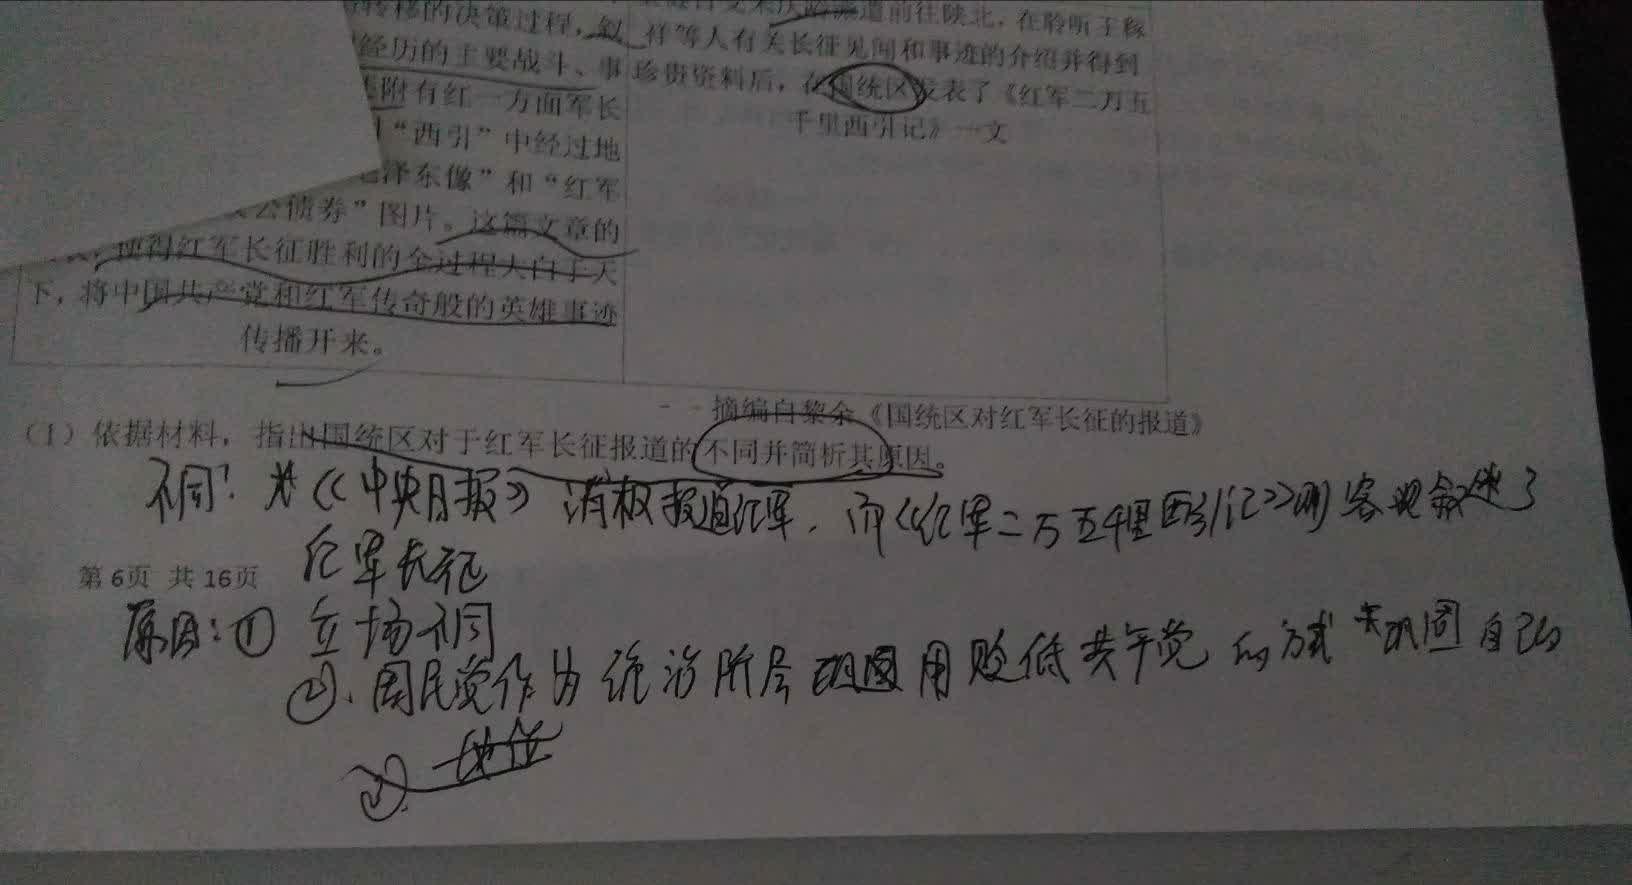 转移的决策过程，叙
经历的主要战斗、事
附有红一方面军长
“西引”中经过地
泽东像”和“红军
公债券”图片。这篇文章的
使得红军长征胜利的全过程大白于天
下，将中国共产党和红军传奇般的英雄事迹
传播开来。
道前往陕北，在聆听于稼
祥等人有关长征见闻和事迹的介绍并得到
珍贵资料后，在国统区发表了《红军二万五
千里西引记》一文
摘编自黎余《国统区对红军长征的报道》
（1）依据材料，指出国统区对于红军长征报道的不同并简析其原因。
不同：《中央日报》消极报道红军，而《红军二万五千里西引记》则客观叙述了
红军长征
第6页 共16页
原因：① 立场不同
②.国民党作为统治阶层 用贬低共产党的方式来巩固自己的
地位